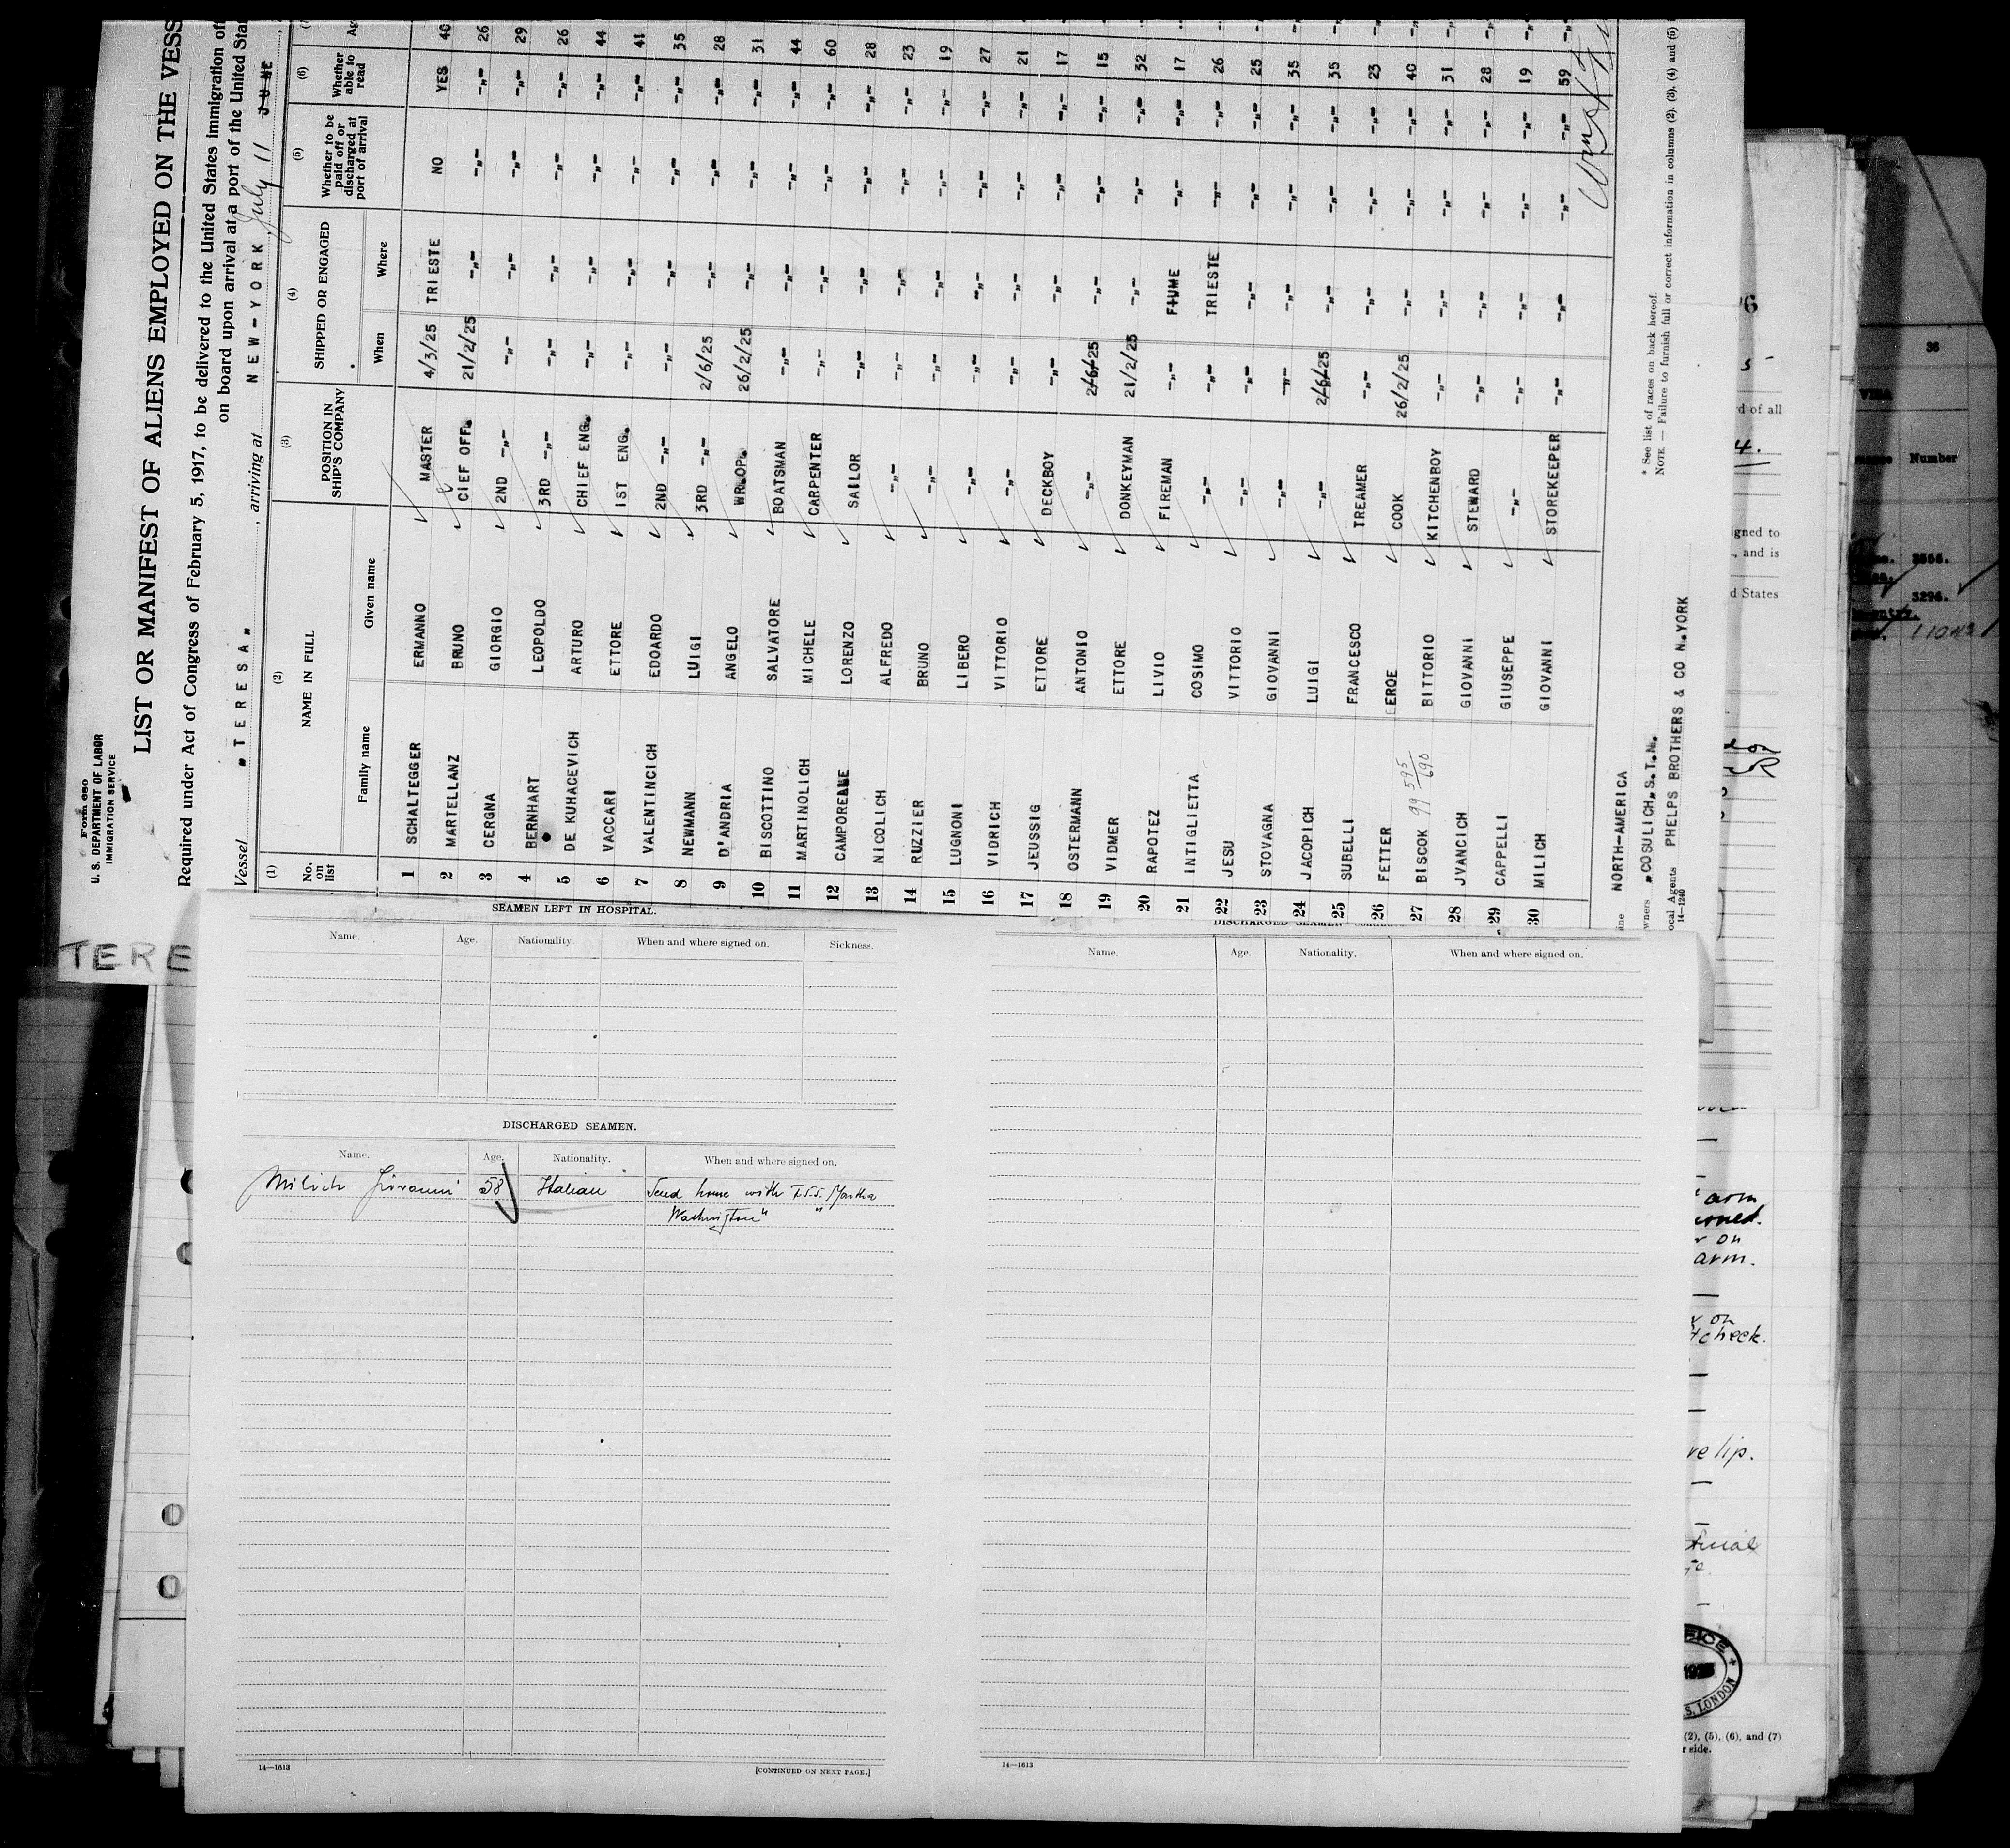 Form 680
U. S. DEPARTMENT OF LABOR
IMMIGRATION SERVICE
LIST OR MANIFEST OF ALIENS EMPLOYED ON THE VESS
Required under Act of Congress of February 5, 1917, to be delivered to the United States immigration off
on board upon arrival at a port of the United Stat
Vessel "TERESA", arriving at NEW-YORK, July 11 JUNE
(1) (2) (3) (4) (5) (6)
No. on list NAME IN FULL POSITION IN SHIP'S COMPANY SHIPPED OR ENGAGED Whether to be paid off or discharged at port of arrival Whether able to read Ag
Family name Given name When Where
1 SCHALTEGGER ERMANNO MASTER 4/3/25 TRIESTE NO YES 40
2 MARTELLANZ BRUNO CIEF OFF. 21/2/25 -"- -"- -"- 26
3 CERGNA GIORGIO 2ND -"- -"- -"- -"- -"- 29
4 BERNHART LEOPOLDO 3RD -"- -"- -"- -"- -"- 26
5 DE KUHACEVICH ARTURO CHIEF ENG. -"- -"- -"- -"- 44
6 VACCARI ETTORE 1ST ENG. -"- -"- -"- -"- 41
7 VALENTINCICH EDOARDO 2ND -"- -"- -"- -"- -"- 35
8 NEWMANN LUIGI 3RD -"- 2/6/25 -"- -"- -"- 28
9 D'ANDRIA ANGELO WR.OP. 26/2/25 -"- -"- -"- 31
10 BISCOTTINO SALVATORE BOATSMAN -"- -"- -"- -"- 44
11 MARTINOLICH MICHELE CARPENTER -"- -"- -"- -"- 60
12 CAMPOREALE LORENZO SAILOR -"- -"- -"- -"- 28
13 NICOLICH ALFREDO -"- -"- -"- -"- -"- 23
14 RUZZIER BRUNO -"- -"- -"- -"- -"- 19
15 LUGNONI LIBERO -"- -"- -"- -"- -"- 27
16 VIDRICH VITTORIO -"- -"- -"- -"- -"- 21
17 JEUSSIG ETTORE DECKBOY -"- -"- -"- -"- 17
18 OSTERMANN ANTONIO -"- 2/6/25 -"- -"- -"- 15
19 VIDMER ETTORE DONKEYMAN 21/2/25 -"- -"- -"- 32
20 RAPOTEZ LIVIO FIREMAN -"- FIUME -"- -"- 17
21 INTIGLIETTA COSIMO -"- -"- TRIESTE -"- -"- 26
22 JESU VITTORIO -"- -"- -"- -"- -"- 25
23 STOVAGNA GIOVANNI -"- -"- -"- -"- -"- 35
24 JACOPICH LUIGI -"- 2/6/25 -"- -"- -"- 35
25 SUBELLI FRANCESCO TREAMER -"- -"- -"- -"- 23
26 FETTER EROE COOK 26/2/25 -"- -"- -"- 40
27 BISCOK 99 595/690 BITTORIO KITCHENBOY -"- -"- -"- -"- 31
28 JVANCICH GIOVANNI STEWARD -"- -"- -"- -"- 28
29 CAPPELLI GIUSEPPE -"- -"- -"- -"- -"- 19
30 MILICH GIOVANNI STOREKEEPER -"- -"- -"- -"- 59
ine NORTH-AMERICA
wners "COSULICH" S.T.N.
ocal Agents PHELPS BROTHERS & CO N.YORK
14—1240
* See list of races on back hereof.
NOTE.—Failure to furnish full or correct information in columns (2), (3), (4) and (6)
TERE
SEAMEN LEFT IN HOSPITAL.
Name. Age. Nationality When and where signed on. Sickness.
DISCHARGED SEAMEN.
Name. Age. Nationality. When and where signed on.
Milich Giovanni 58 Italian Send home with T.S.S. "Martha
Washington"
14—1613 [CONTINUED ON NEXT PAGE.]
DISCHARGED SEAMEN
Name. Age. Nationality. When and where signed on.
14—1613
36
VISA
Number
3296.
11042
rd of all
4.
igned to
, and is
d States
arm
on
arm.
on
check.
lip.
LONDON
(2), (5), (6), and (7)
r side.